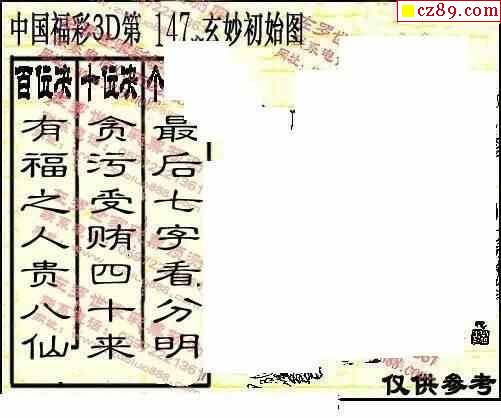 cz89.com
中国福彩3D第147 玄妙初始图
百位决
有福之人贵八仙
十位决
贪污受贿四十来
个
最后七字看分明
仅供参考